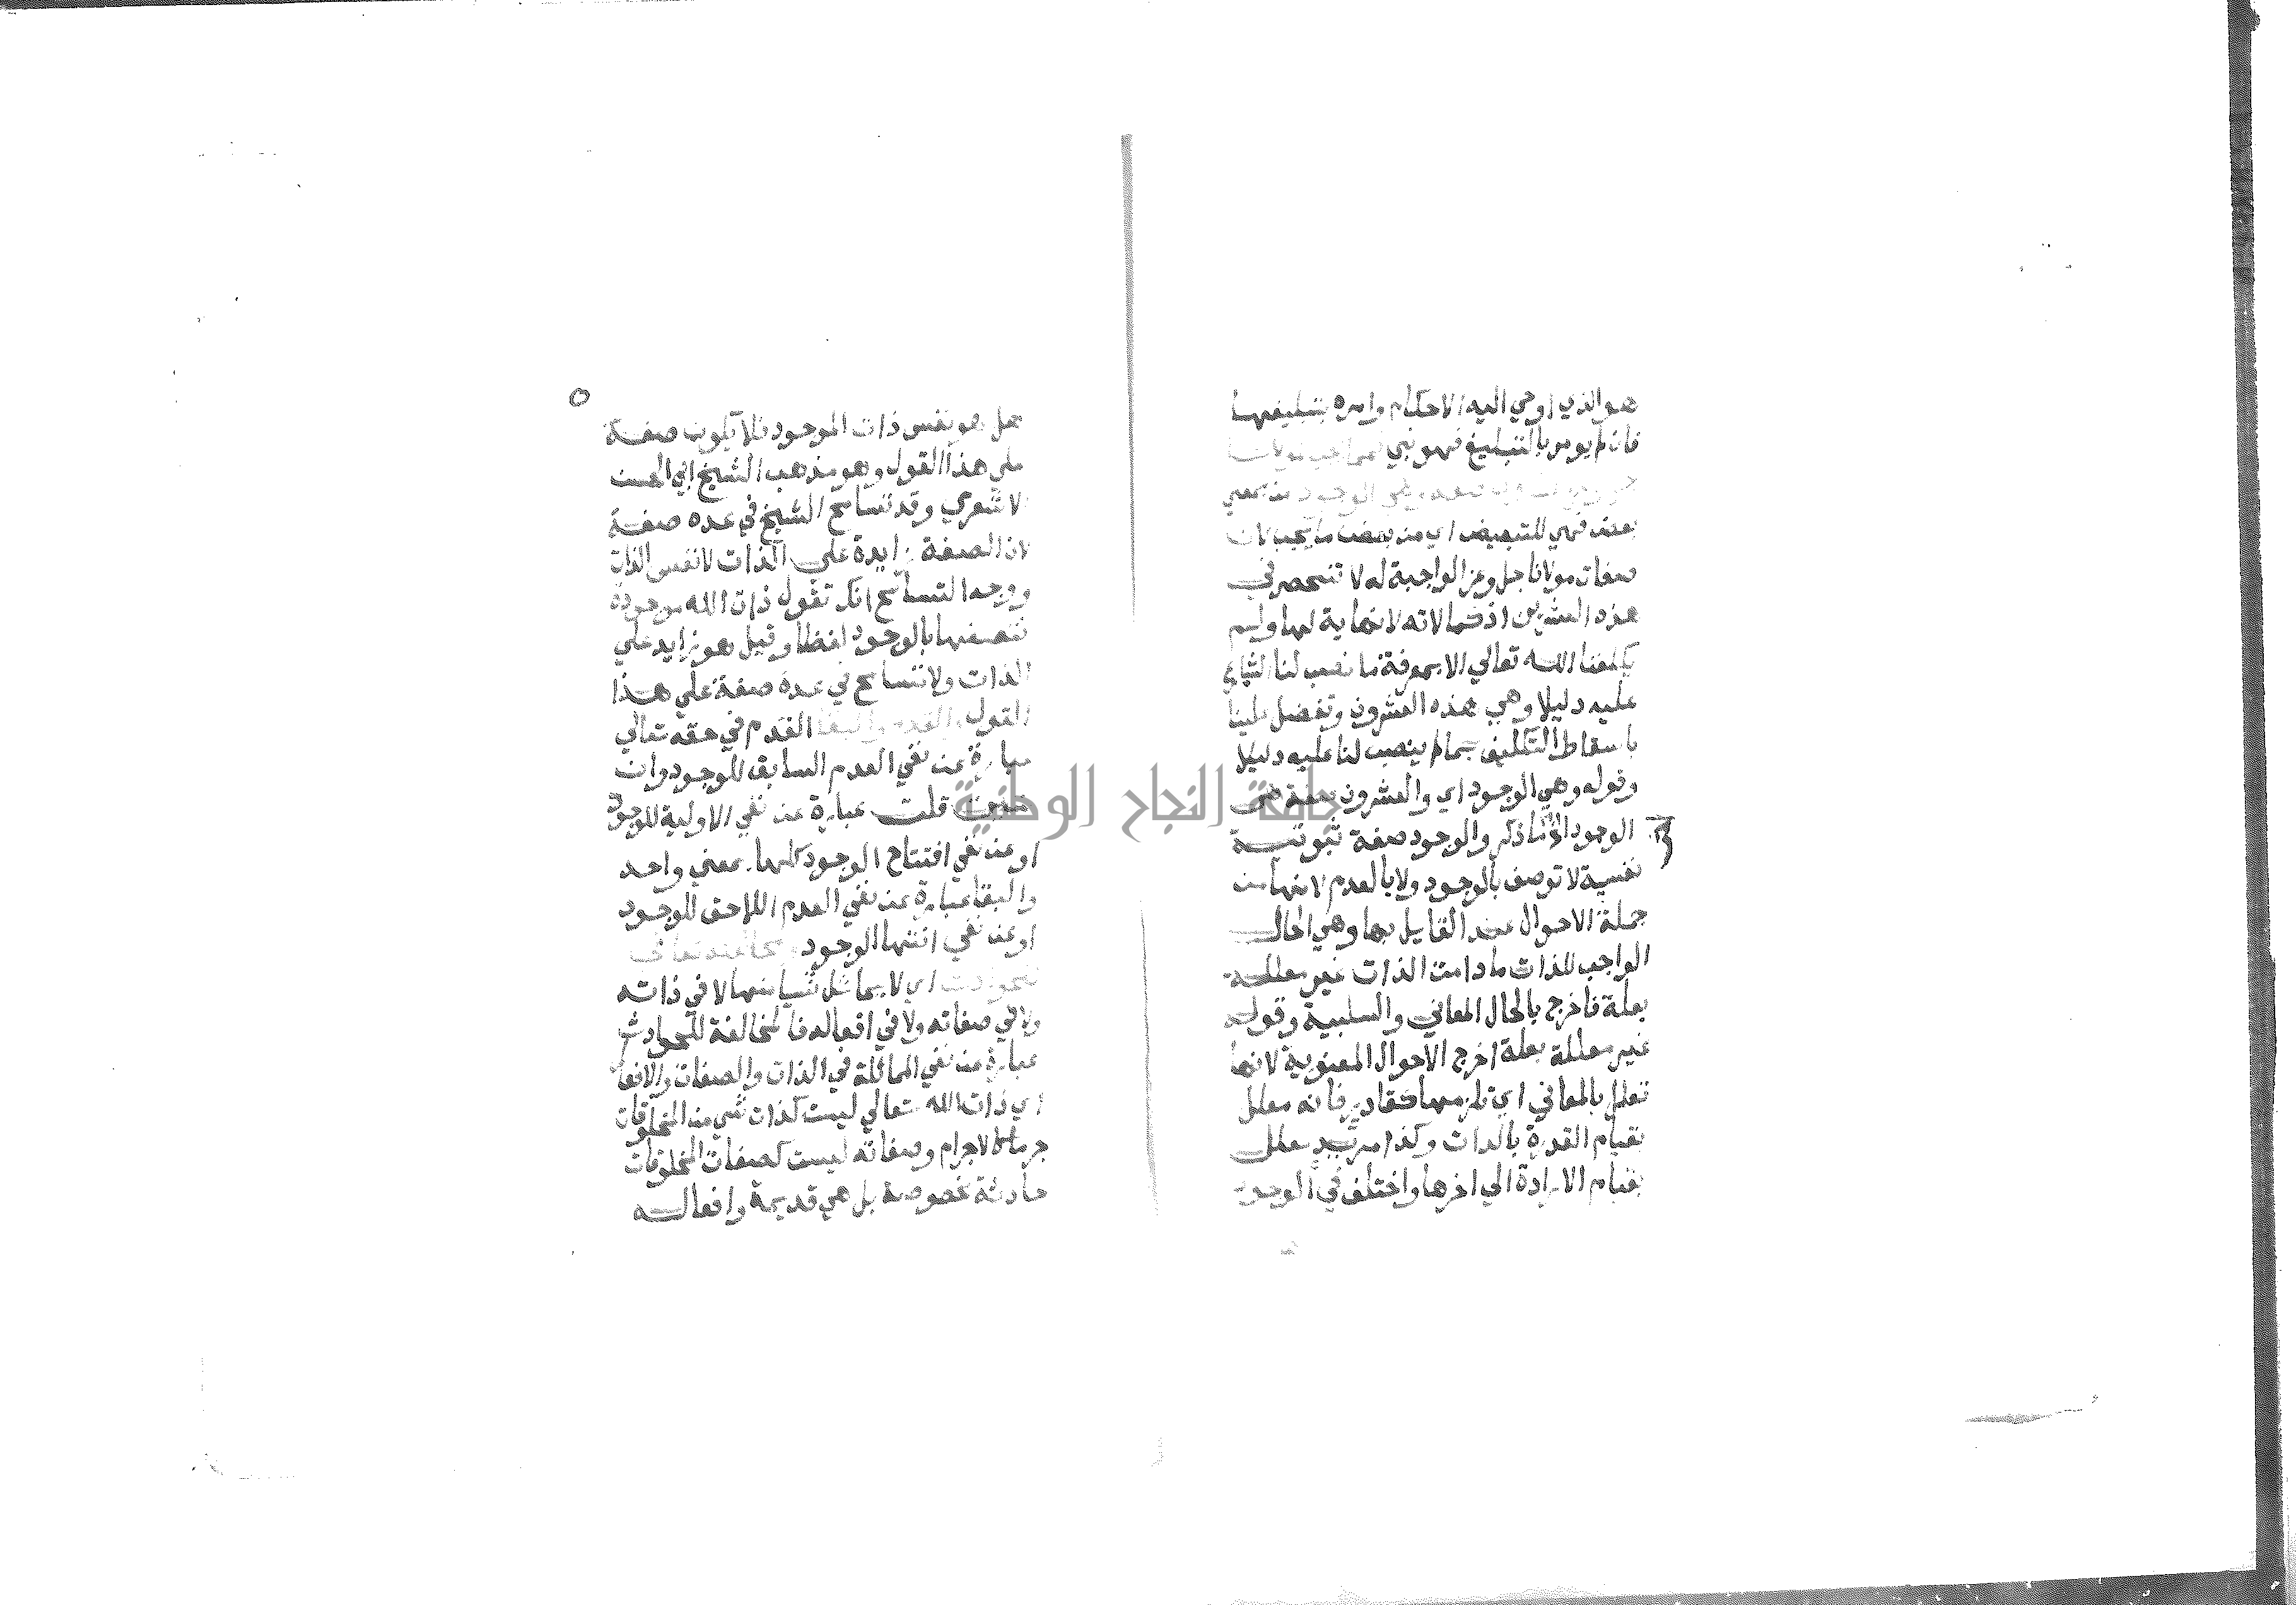 هو الذي اوحي اليه الاحكام وامره بتبليغها
فان لم يومر بالتبليغ فهو نبي فمما يجب لمولانا
جل وعز عشرون صفة وهي الوجود من بمعني
بعض فهي للتبعيض اي من بعض ما يجب لان
صفات مولانا جل وعز الواجبة له لا تنحصر في
هذه العشرين اذ كمالاته لا نهاية لها ولم
يكلفنا الله تعالي الا بمعرفة ما نصب لنا
عليه دليلا وهي هذه العشرون وتفضل علينا
باسقاط التكليف بما لم ينصب لنا عليه دليلا
وقوله وهي الوجود اي والعشرون صفة هي
الوجود الخ ما ذكر والوجود صفة ثبوتية
نفسية لا توصف بالوجود ولا بالعدم لانها من
جملة الاحوال عند القايل بها وهي الحال
الواجب للذات ما دامت الذات غير معللة
بعلة فاخرج بالحال المعاني والسلبية وقوله
غير معللة بعلة اخرج الاحوال المعنوية لانها
تعلل بالمعاني اي تلازمها كقادر فانه معلل
بقيام القدرة بالذات وكذا مريد معلل
بقيام الارادة الي اخرها واختلف في الوجود
هل هو نفس ذات الموجود فلا يكون صفة
علي هذا القول وهو مذهب الشيخ ابي الحسن
الاشعري وقد تسامح الشيخ في عده صفة
لان الصفة زايدة علي الذات لا نفس الذات
ووجه التسامح انك تقول ذات الله موجودة
فتصفها بالوجود لفظا وقيل هو زايد علي
الذات ولا تسامح في عده صفة علي هذا
القول والقدم والبقا القدم في حقه تعالي
عبارة عن نفي العدم السابق للوجود وان
شيت قلت عبارة عن نفي الاولية للوجود
او عن نفي افتتاح الوجود كلها بمعني واحد
والبقا عبارة عن نفي العدم اللاحق للوجود
او عن نفي انتها الوجود ومخالفته تعالي
للحوادث اي لا يماثل شيا منها لا في ذاته
ولا في صفاته ولا في افعاله فالمخالفة للحوادث
عبارة عن نفي المماثلة في الذات والصفات والافعال
اي ذات الله تعالي ليست كذات شي من المخلوقات
جرما كالاجرام وصفاته ليست كصفات المخلوقات
حادثة مخصوصة بل هي قديمة وافعاله
جامعة النجاح الوطنية